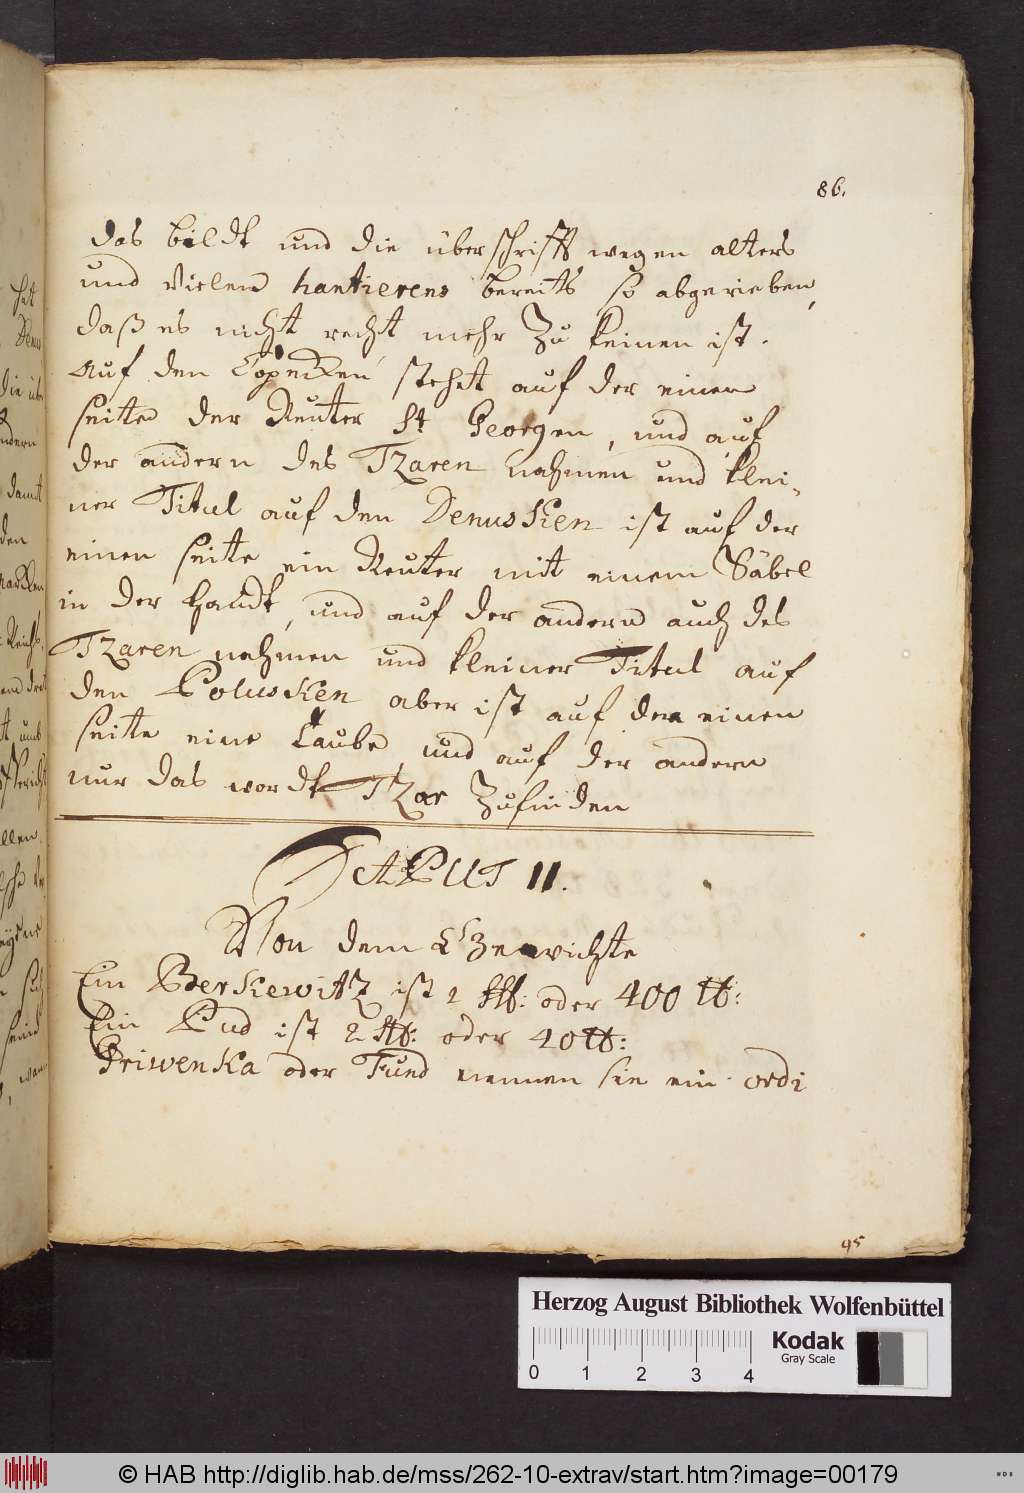 86.
das bildt und die überschrifft wegen alters
und vielem hantierens bereits so abgerieben,
daß es nicht recht mehr zu keinen ist.
Auf den Copecken stehet auf der einen
seite der Reuter St Georgen, und auf
der andern des Tzaren nahmen und klei-
ner Titul auf den Denusken ist auf der
einen seite ein Reuter mit einem Säbel
in der Handt, und auf der andern auch des
Tzaren nahmen und kleiner Titul auf
den Polusken aber ist auf der einen
seite eine Taube und auf der andern
nur das wordt Tzar zufinden
CAPUT II.
Von dem Gewichte
Ein Berkewitz ist oder 400 ℔:
Ein Pud ist 2 oder 40 ℔:
Griwenka oder Fund nennen sie ein ordi
95
Herzog August Bibliothek Wolfenbüttel
Kodak
Gray Scale
0 1 2 3 4
© HAB http://diglib.hab.de/mss/262-10-extrav/start.htm?image=00179